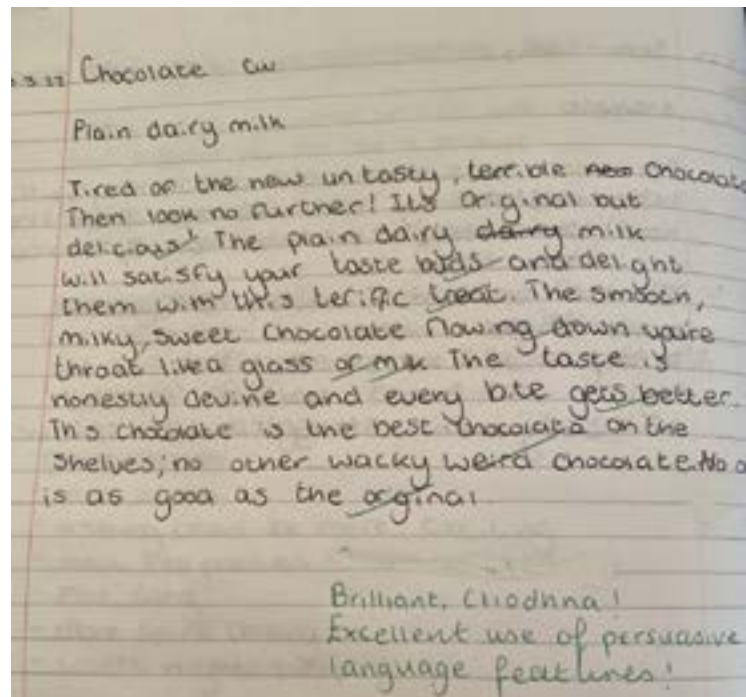 .3.22 Chocolate CW
Plain dairy milk
Tired of the new untasty, terrible Chocolate
Then look no further! Its original but
delicious! The plain dairy dairy milk
will satisfy your taste buds and delight
them with this terific treat. The smooth,
milky, sweet Chocolate flowing down youre
throat like a glass of milk The taste is
honestly devine and every bite gets better.
This chocolate is the best chocolate on the
Shelves; no other wacky weird chocolate. No
is as good as the orginal
Brilliant, Clíodhna!
Excellent use of persuasive
language features!